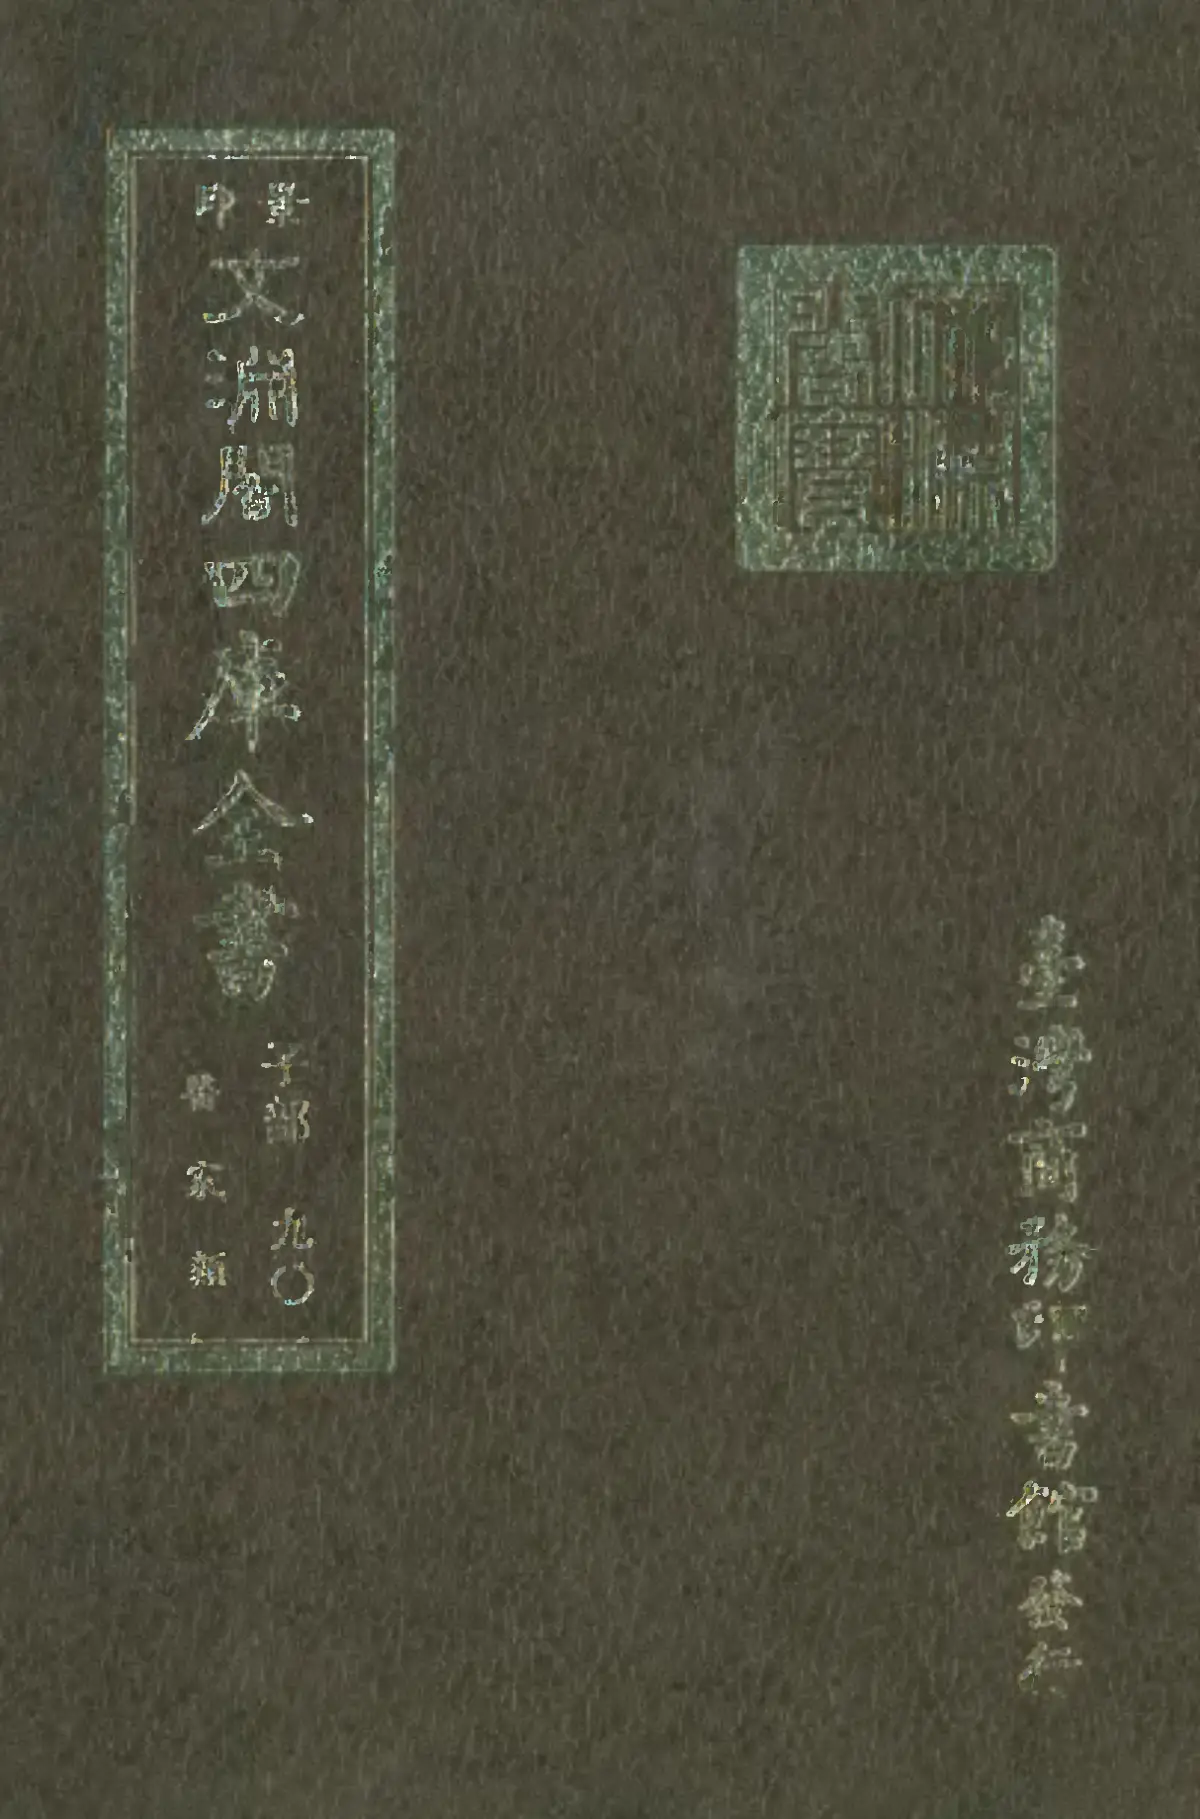 景印
文淵閣四庫全書
子部 九〇
醫家類
臺灣商務印書館發行